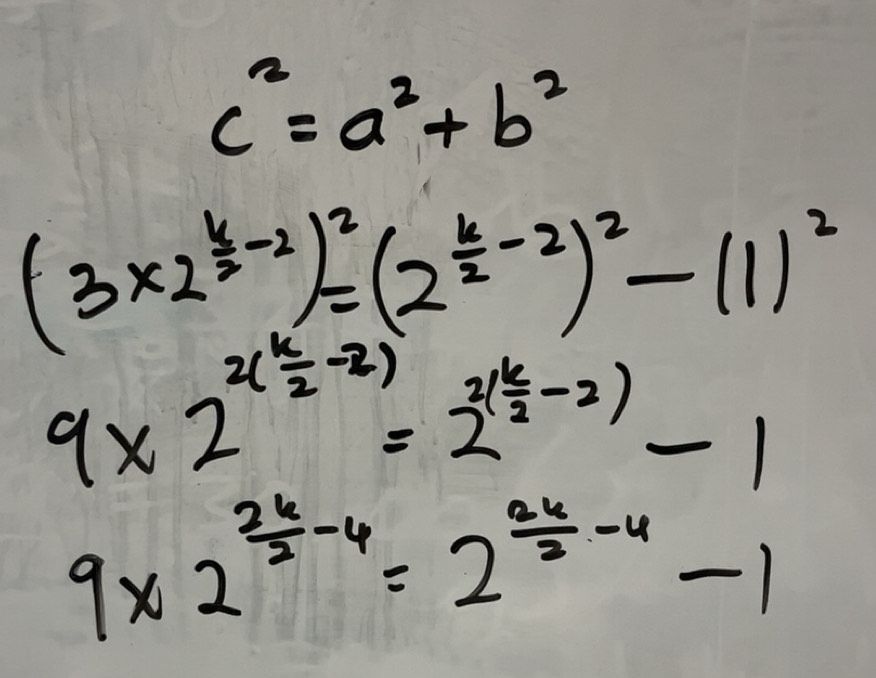 c² = a² + b²
(3 × 2^(k/2 − 2))² = (2^(k/2 − 2))² − (1)²
9 × 2^(2(k/2 − 2)) = 2^(2(k/2 − 2)) − 1
9 × 2^(2k/2 − 4) = 2^(2k/2 − 4) − 1